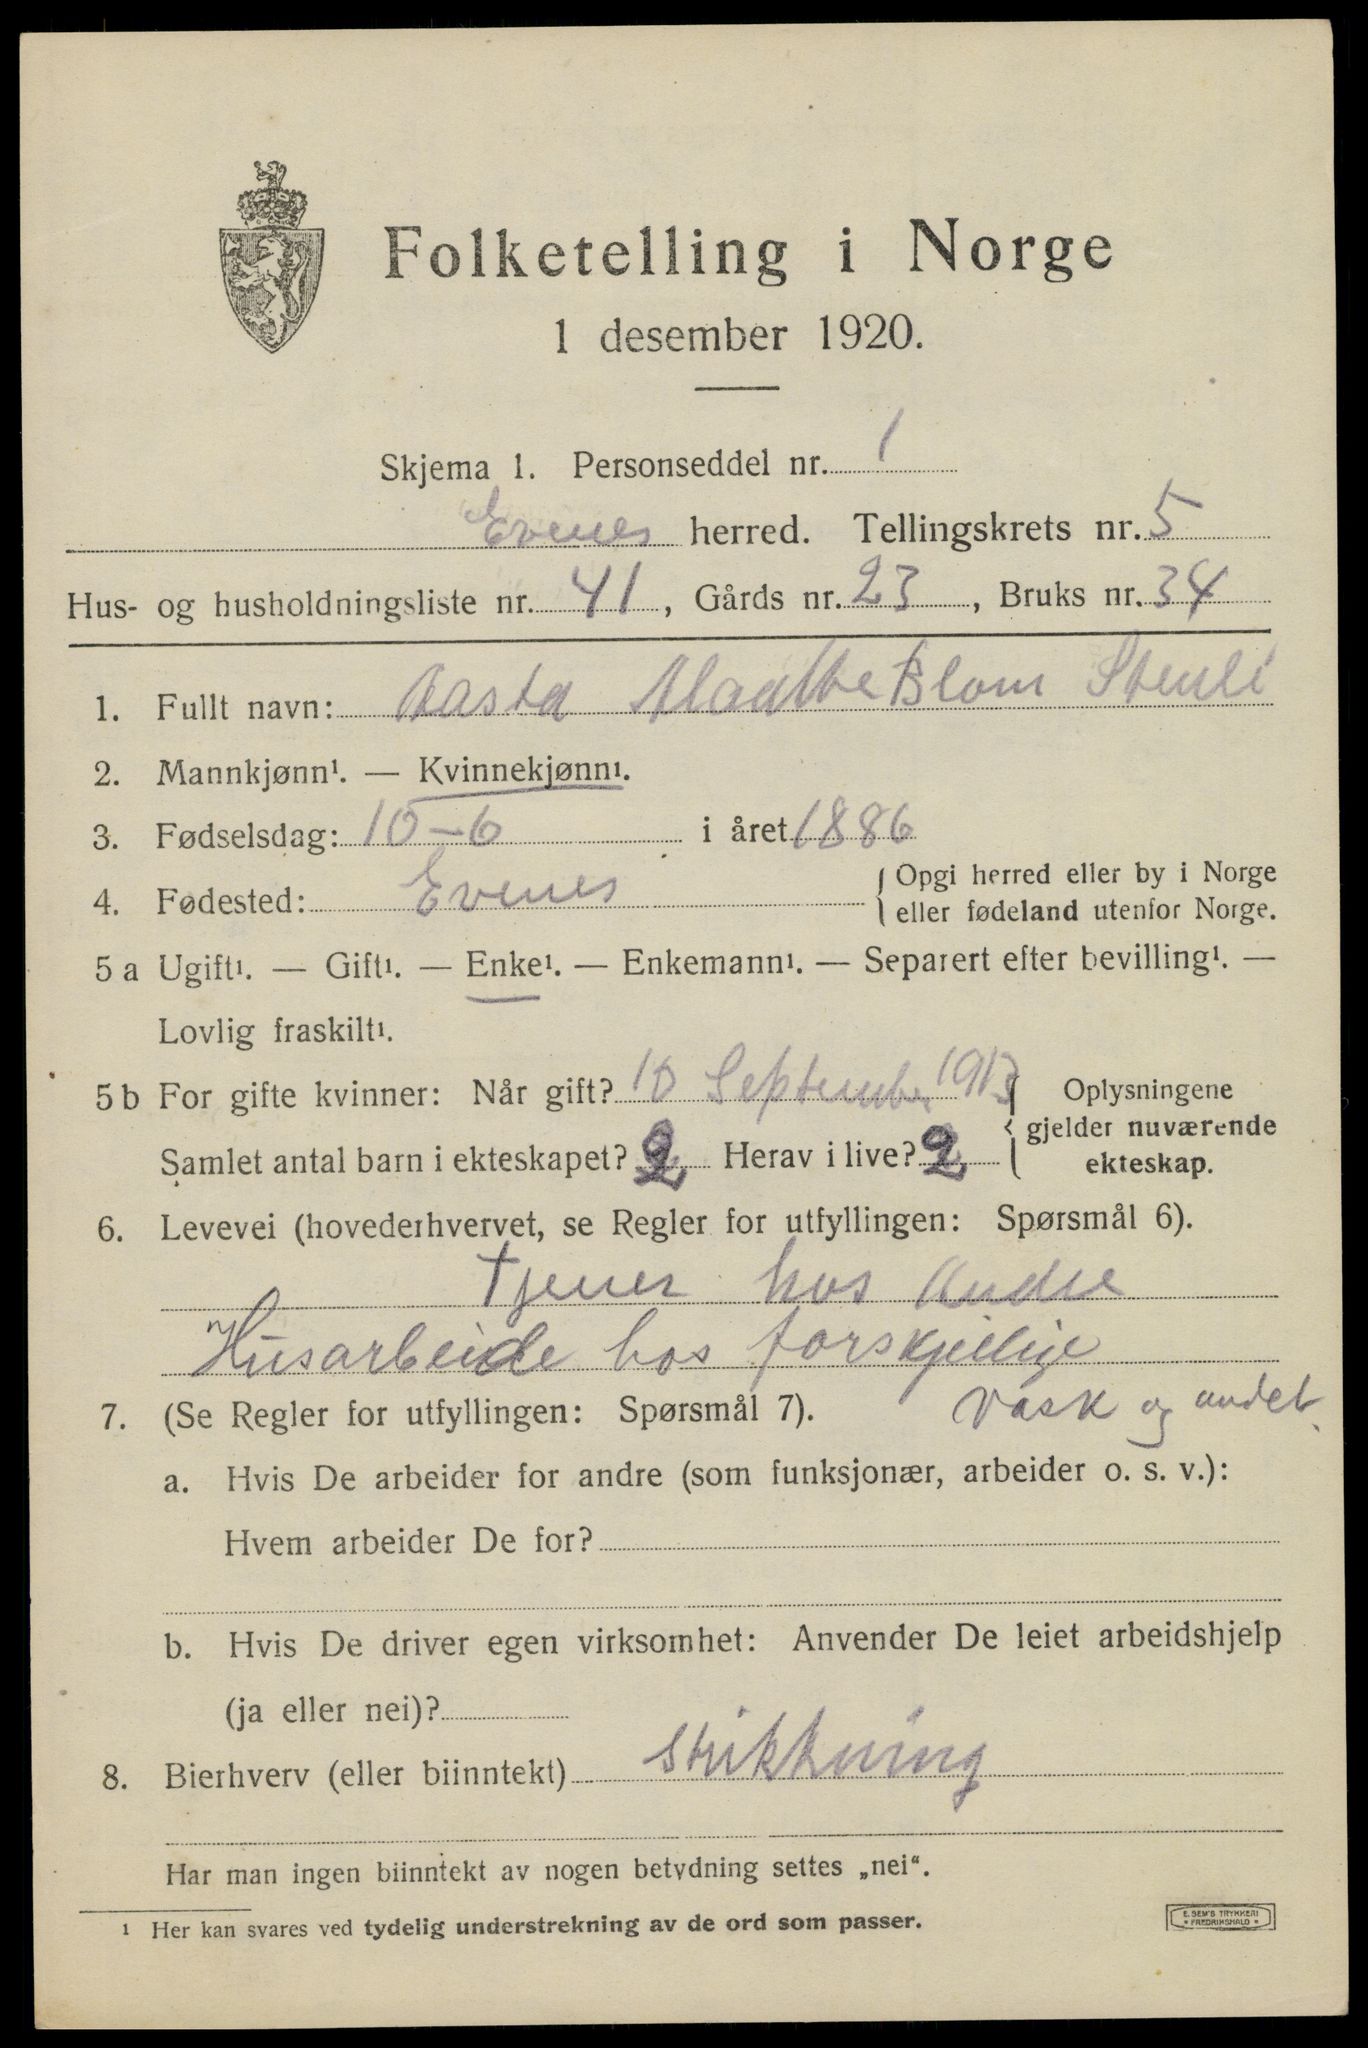 Folketelling i Norge
1 desember 1920.
Skjema 1. Personseddel nr. 1
Evenes herred. Tellingskrets nr. 5
Hus- og husholdningsliste nr. 41, Gårds nr. 23, Bruks nr. 34
1. Fullt navn: Aasta Blom
2. Mannkjønn¹. — Kvinnekjønn¹.
3. Fødselsdag: 10-6 i året 1886
4. Fødested: Evenes { Opgi herred eller by i Norge
eller fødeland utenfor Norge.
5 a Ugift¹. — Gift¹. — Enke¹. — Enkemann¹. — Separert efter bevilling¹. —
Lovlig fraskilt¹.
5 b For gifte kvinner: Når gift? 10 September 1913 { Oplysningene
gjelder nuværende
ekteskap.
Samlet antal barn i ekteskapet? 2 Herav i live? 2
6. Levevei (hovederhvervet, se Regler for utfyllingen: Spørsmål 6).
tjener hos Andre
Husarbeide hos forskjellige
vask og andet.
7. (Se Regler for utfyllingen: Spørsmål 7).
a. Hvis De arbeider for andre (som funksjonær, arbeider o. s. v.):
Hvem arbeider De for?
b. Hvis De driver egen virksomhet: Anvender De leiet arbeidshjelp
(ja eller nei)?
8. Bierhverv (eller biinntekt) strikkning
Har man ingen biinntekt av nogen betydning settes „nei“.
¹ Her kan svares ved tydelig understrekning av de ord som passer.
E. SEM'S TRYKKERI
* FREDRIKSHALD *